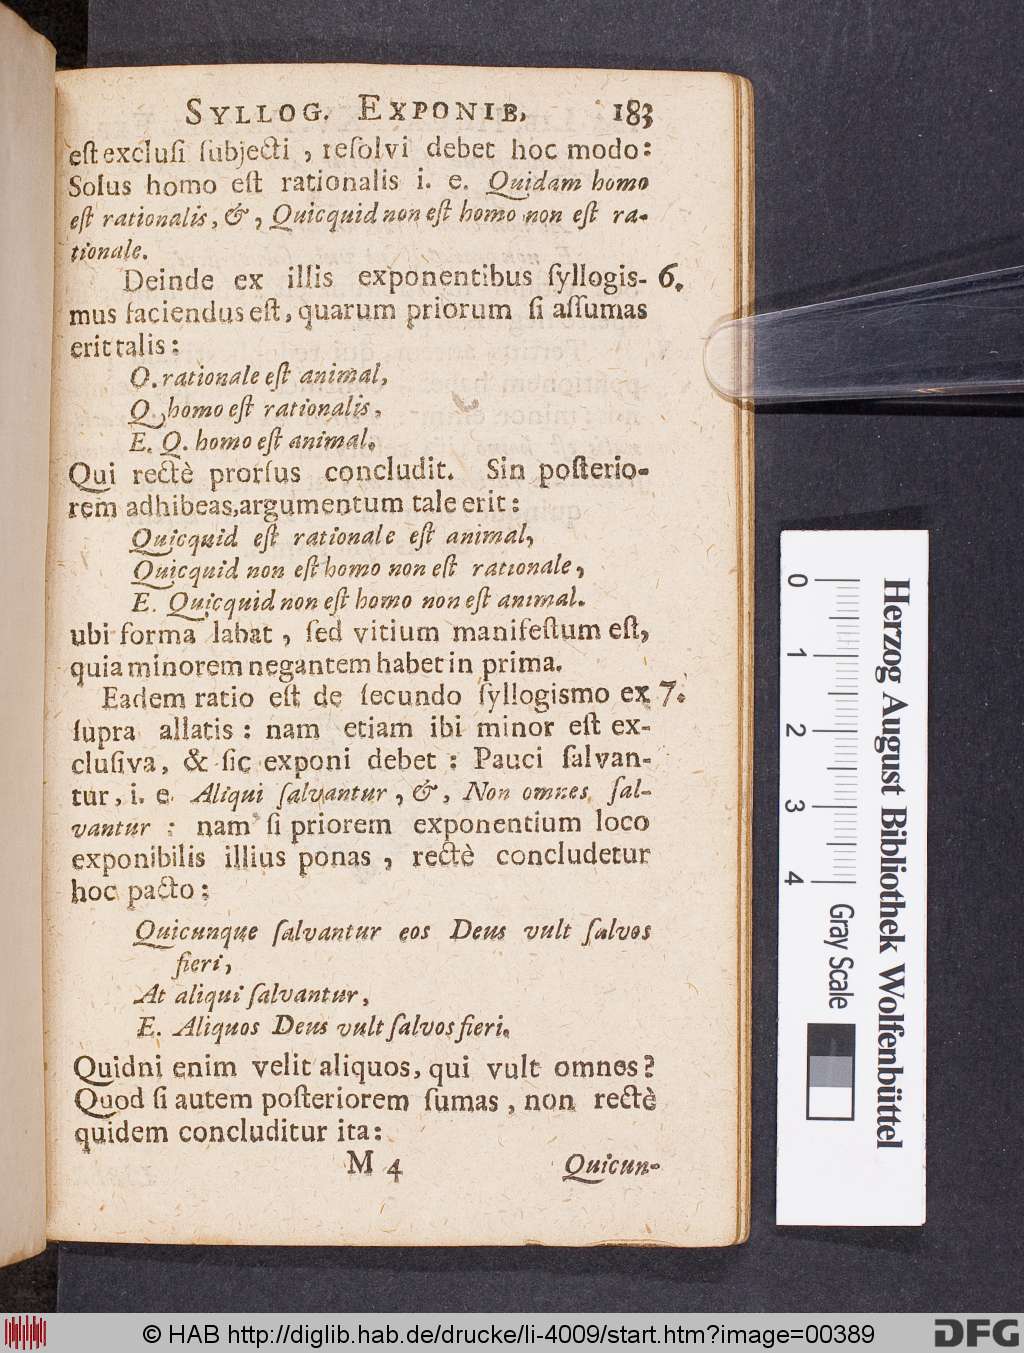 SYLLOG. EXPONIB. 183
eſt excluſi ſubjecti, reſolvi debet hoc modo:
Solus homo eſt rationalis i. e. Quidam homo
eſt rationalis, &, Quicquid non eſt homo non eſt ra-
tionale.
Deinde ex illis exponentibus ſyllogis- 6.
mus faciendus eſt, quarum priorum ſi aſſumas
erit talis:
O. rationale eſt animal,
Q. homo eſt rationalis,
E. Q. homo eſt animal.
Qui rectè prorſus concludit. Sin poſterio-
rem adhibeas, argumentum tale erit:
Quicquid eſt rationale eſt animal,
Quicquid non eſt homo non eſt rationale,
E. Quicquid non eſt homo non eſt animal.
ubi forma labat, ſed vitium manifeſtum eſt,
quia minorem negantem habet in prima.
Eadem ratio eſt de ſecundo ſyllogismo ex 7.
ſupra allatis: nam etiam ibi minor eſt ex-
cluſiva, & ſic exponi debet: Pauci ſalvan-
tur, i. e. Aliqui ſalvantur, &, Non omnes ſal-
vantur: nam ſi priorem exponentium loco
exponibilis illius ponas, rectè concludetur
hoc pacto:
Quicunque ſalvantur eos Deus vult ſalvos
fieri,
At aliqui ſalvantur,
E. Aliquos Deus vult ſalvos fieri.
Quidni enim velit aliquos, qui vult omnes?
Quod ſi autem poſteriorem ſumas, non rectè
quidem concluditur ita:
M 4 Quicun-
0 1 2 3 4 Gray Scale
Herzog August Bibliothek Wolfenbüttel
© HAB http://diglib.hab.de/drucke/li-4009/start.htm?image=00389
DFG